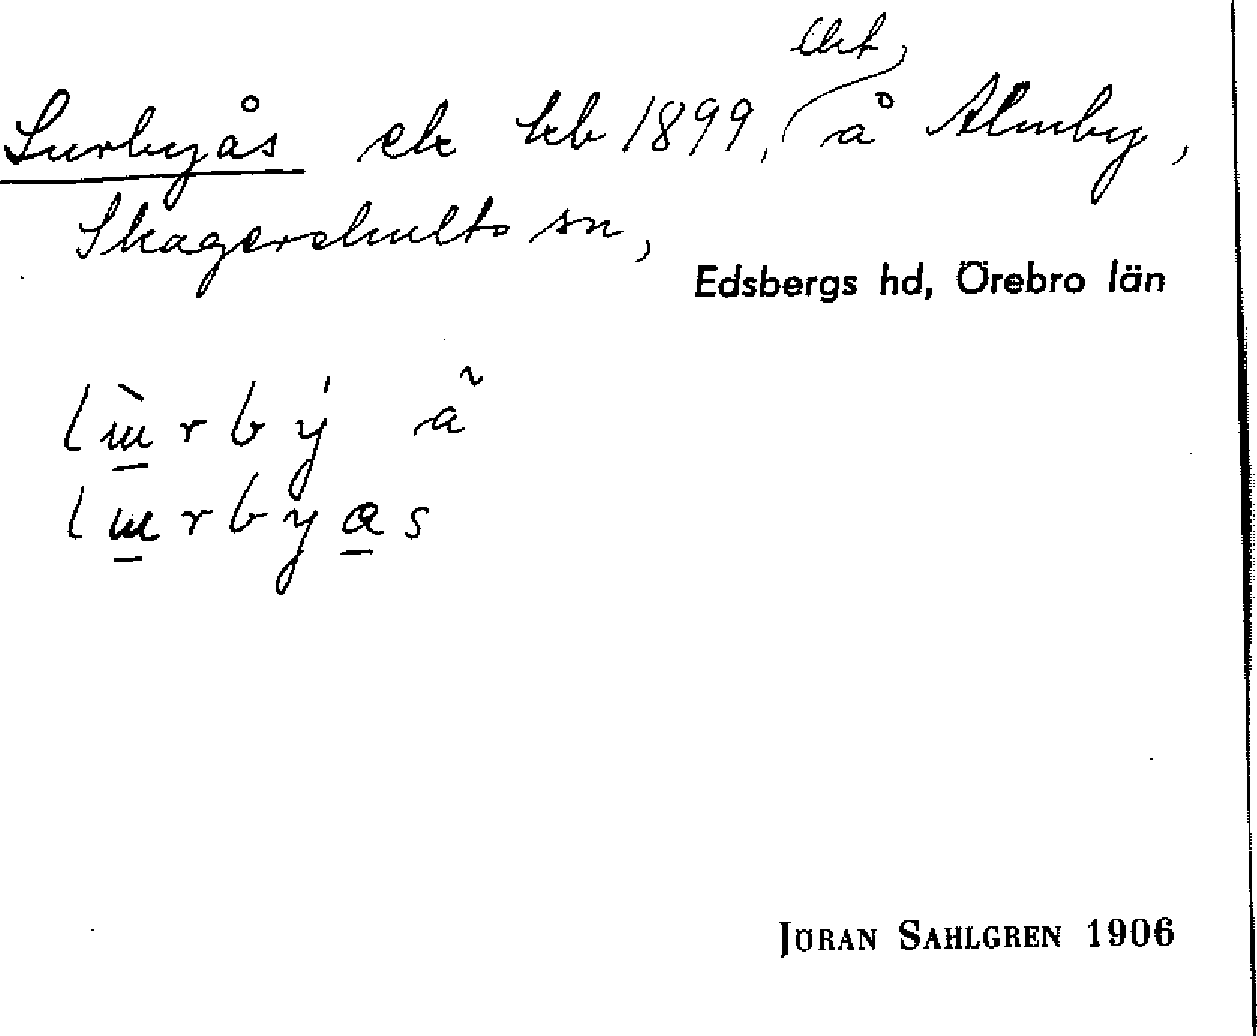 Lurbyås ek kb 1899, å Almby,
Skagershults sn,
Edsbergs hd, Örebro län
lɯ̀rbý ã
lɯrbyas
JÖRAN SAHLGREN 1906